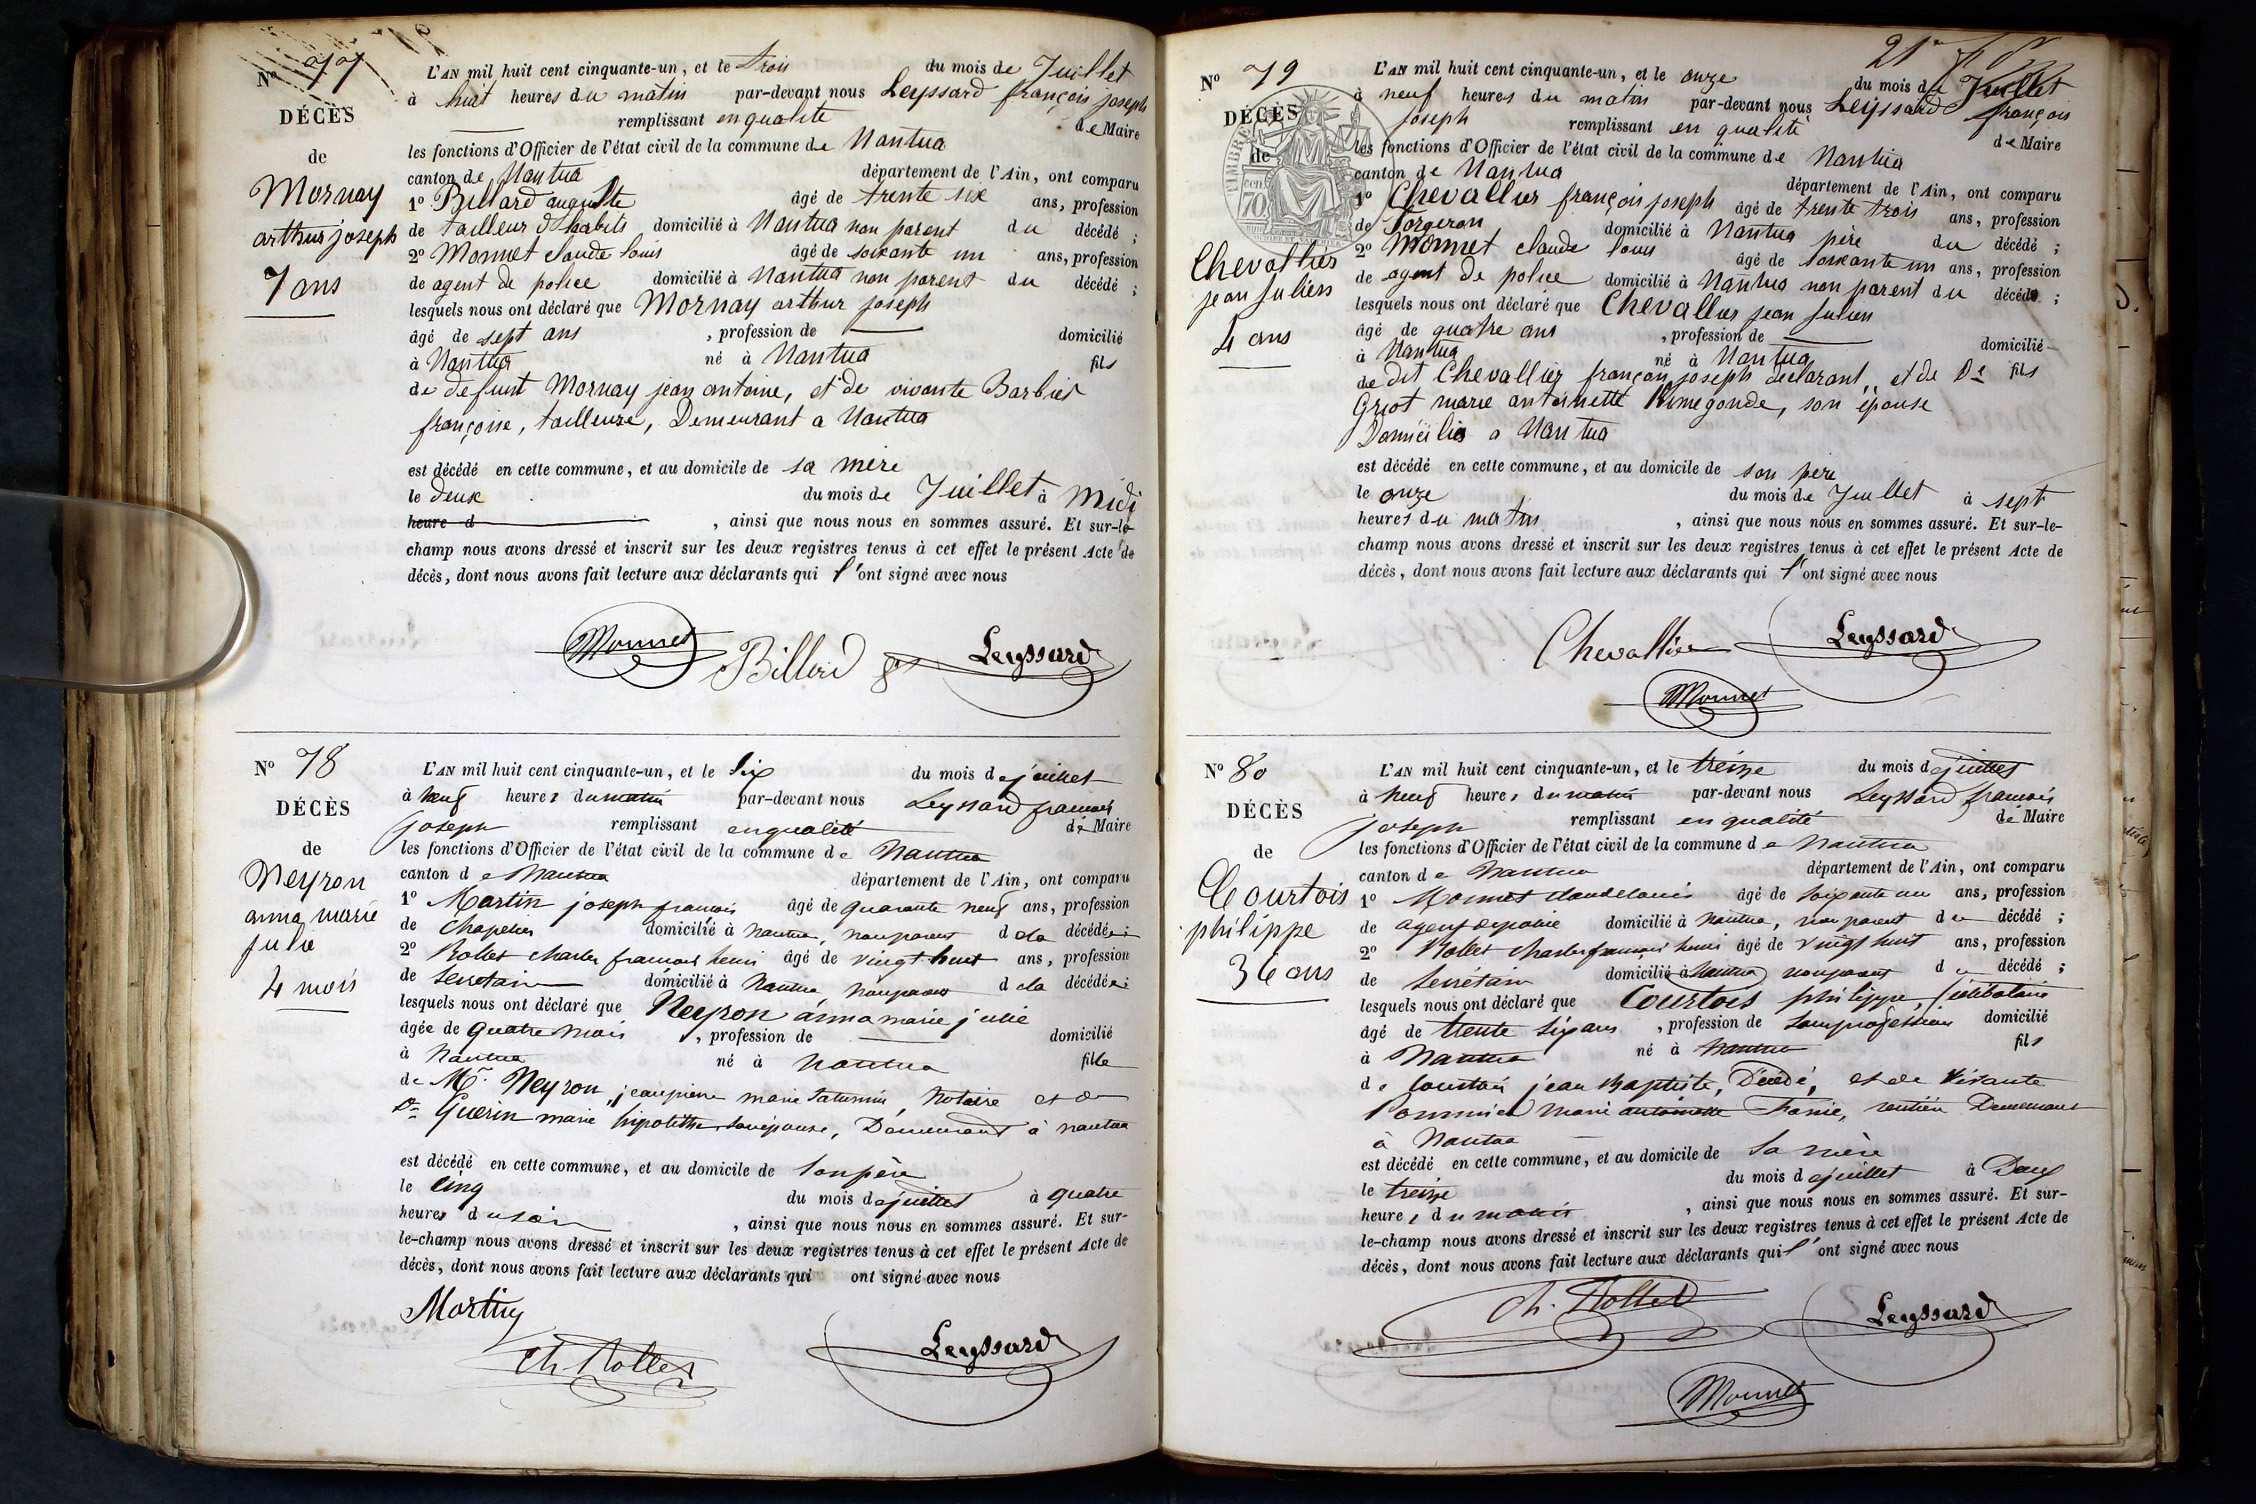 Nº 77
DÉCÈS
de
Mornay
arthur joseph
7 ans
L'AN mil huit cent cinquante-un, et le trois du mois de Juillet
à huit heures du matin par-devant nous Leyssard françois joseph
remplissant en qualité de Maire
les fonctions d'Officier de l'état civil de la commune de Nantua
canton de Nantua département de l'Ain, ont comparu
1º Billard auguste âgé de trente six ans, profession
de tailleur d'habits domicilié à Nantua non parent du décédé ;
2º Monnet claude louis âgé de soixante un ans, profession
de agent de police domicilié à Nantua non parent du décédé ;
lesquels nous ont déclaré que Mornay arthur joseph
âgé de sept ans , profession de domicilié
à Nantua né à Nantua fils
de defunt Mornay jean antoine, et de vivante Barbier
françoise, tailleuse, Demeurant a Nantua
est décédé en cette commune, et au domicile de sa mère
le deux du mois de Juillet à Midi
heure d , ainsi que nous nous en sommes assuré. Et sur-le-
champ nous avons dressé et inscrit sur les deux registres tenus à cet effet le présent Acte de
décès, dont nous avons fait lecture aux déclarants qui l'ont signé avec nous
Monnet Billard Leyssard
Nº 78
DÉCÈS
de
Neyron
anna marie
julie
4 mois
L'AN mil huit cent cinquante-un, et le Six du mois de juillet
à neuf heures du matin par-devant nous Leyssard francois
joseph remplissant en qualité de Maire
les fonctions d'Officier de l'état civil de la commune de Nantua
canton de Nantua département de l'Ain, ont comparu
1º Martin joseph francois âgé de quarante neuf ans, profession
de Chapelier domicilié à Nantua, non parent de la décédée ;
2º Rollet charles francois henri âgé de vingt huit ans, profession
de Secretaire domicilié à Nantua non parent de la décédée ;
lesquels nous ont déclaré que Neyron anna marie julie
âgée de quatre mois , profession de domicilié
à Nantua né à Nantua fille
de Mr. Neyron, jean pierre marie Saturnin, Notaire et de
De Guerin marie hipolithe son épouse, Demeurant à nantua
est décédé en cette commune, et au domicile de son père
le Cinq du mois de juillet à quatre
heures du soir , ainsi que nous nous en sommes assuré. Et sur-
le-champ nous avons dressé et inscrit sur les deux registres tenus à cet effet le présent Acte de
décès, dont nous avons fait lecture aux déclarants qui ont signé avec nous
Martin
Ch. Rollet Leyssard
Nº 79
DÉCÈS
de
Chevallier
jean Julien
4 ans
L'AN mil huit cent cinquante-un, et le onze du mois de Juillet
à neuf heures du matin par-devant nous Leyssard françois
joseph remplissant en qualité de Maire
les fonctions d'Officier de l'état civil de la commune de Nantua
canton de Nantua département de l'Ain, ont comparu
1º Chevallier françois joseph âgé de trente trois ans, profession
de Forgeron domicilié à Nantua père du décédé ;
2º Monnet claude louis âgé de soixante un ans, profession
de agent de police domicilié à Nantua non parent du décédé ;
lesquels nous ont déclaré que Chevallier jean Julien
âgé de quatre ans , profession de domicilié
à Nantua né à Nantua fils
de dit Chevallier françois joseph declarant, et de De
Griot marie antoinette son épouse
Domicilié a Nantua
est décédé en cette commune, et au domicile de son père
le onze du mois de Juillet à sept
heures du matin , ainsi que nous nous en sommes assuré. Et sur-le-
champ nous avons dressé et inscrit sur les deux registres tenus à cet effet le présent Acte de
décès, dont nous avons fait lecture aux déclarants qui l'ont signé avec nous
Chevallier Leyssard
Monnet
Nº 80
DÉCÈS
de
Courtois
philippe
36 ans
L'AN mil huit cent cinquante-un, et le treize du mois de juillet
à neuf heures du matin par-devant nous Leyssard francois
joseph remplissant en qualité de Maire
les fonctions d'Officier de l'état civil de la commune de Nantua
canton de Nantua département de l'Ain, ont comparu
1º Monnet claude louis âgé de soixante un ans, profession
de agent de police domicilié à Nantua, non parent du décédé ;
2º Rollet charles francois henri âgé de vingt huit ans, profession
de Secrétaire domicilié à Nantua non parent du décédé ;
lesquels nous ont déclaré que Courtois philippe, Célibataire
âgé de trente six ans , profession de Sans profession domicilié
à Nantua né à Nantua fils
de Courtois jean Baptiste, Décédé, et de Vivante
Pommier Marie antoinette rentière Demeurant
à Nantua
est décédé en cette commune, et au domicile de Sa mère
le treize du mois de juillet à Deux
heures du matin , ainsi que nous nous en sommes assuré. Et sur-
le-champ nous avons dressé et inscrit sur les deux registres tenus à cet effet le présent Acte de
décès, dont nous avons fait lecture aux déclarants qui l'ont signé avec nous
Ch. Rollet Leyssard
Monnet